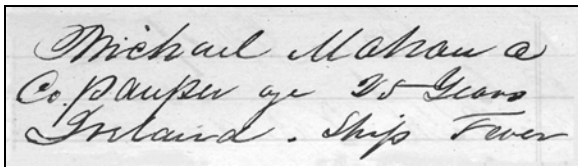 Michael Mahan a
Co. Pauper age 25 Years
Ireland. Ship Fever